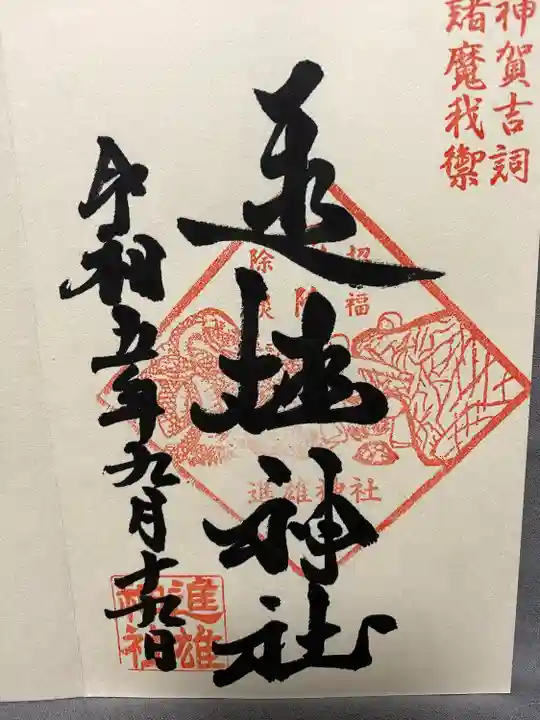 神賀吉詞
諸魔我禦
招福
進雄神社
進雄神社
令和五年九月
日
進雄
神社